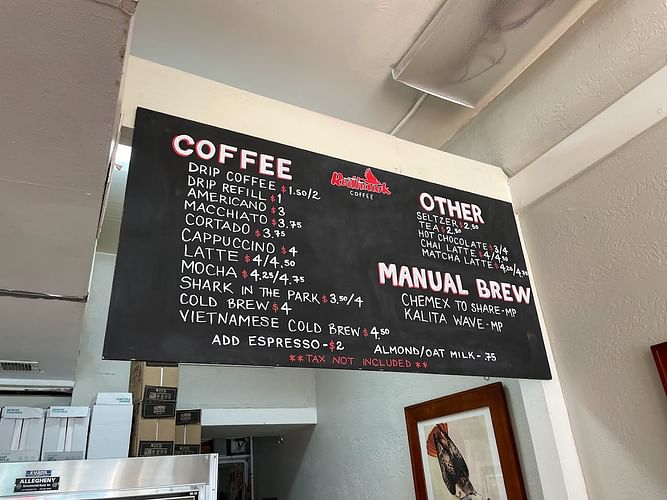 COFFEE
DRIP COFFEE $1.50/2
DRIP REFILL $1
AMERICANO $3
MACCHIATO $3.75
CORTADO $3.75
CAPPUCCINO $4
LATTE $4/4.50
MOCHA $4.25/4.75
SHARK IN THE PARK $3.50/4
COLD BREW $4
VIETNAMESE COLD BREW $4.50
Redhawk
COFFEE
OTHER
SELTZER $2.50
TEA $2.50
HOT CHOCOLATE $3/4
CHAI LATTE $4/4.50
MATCHA LATTE $4.25/4.75
MANUAL BREW
CHEMEX TO SHARE - MP
KALITA WAVE - MP
ADD ESPRESSO - $2
ALMOND/OAT MILK - .75
**TAX NOT INCLUDED**
ALLEGHENY